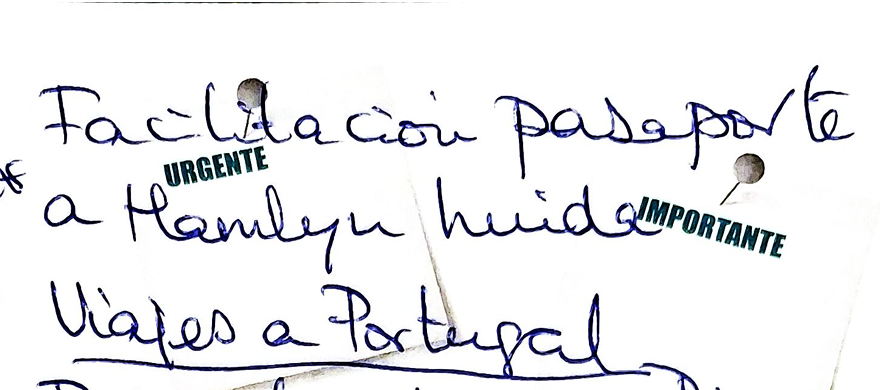 Facilitación pasaporte
URGENTE
a Hamlyn huida
IMPORTANTE
Viajes a Portugal